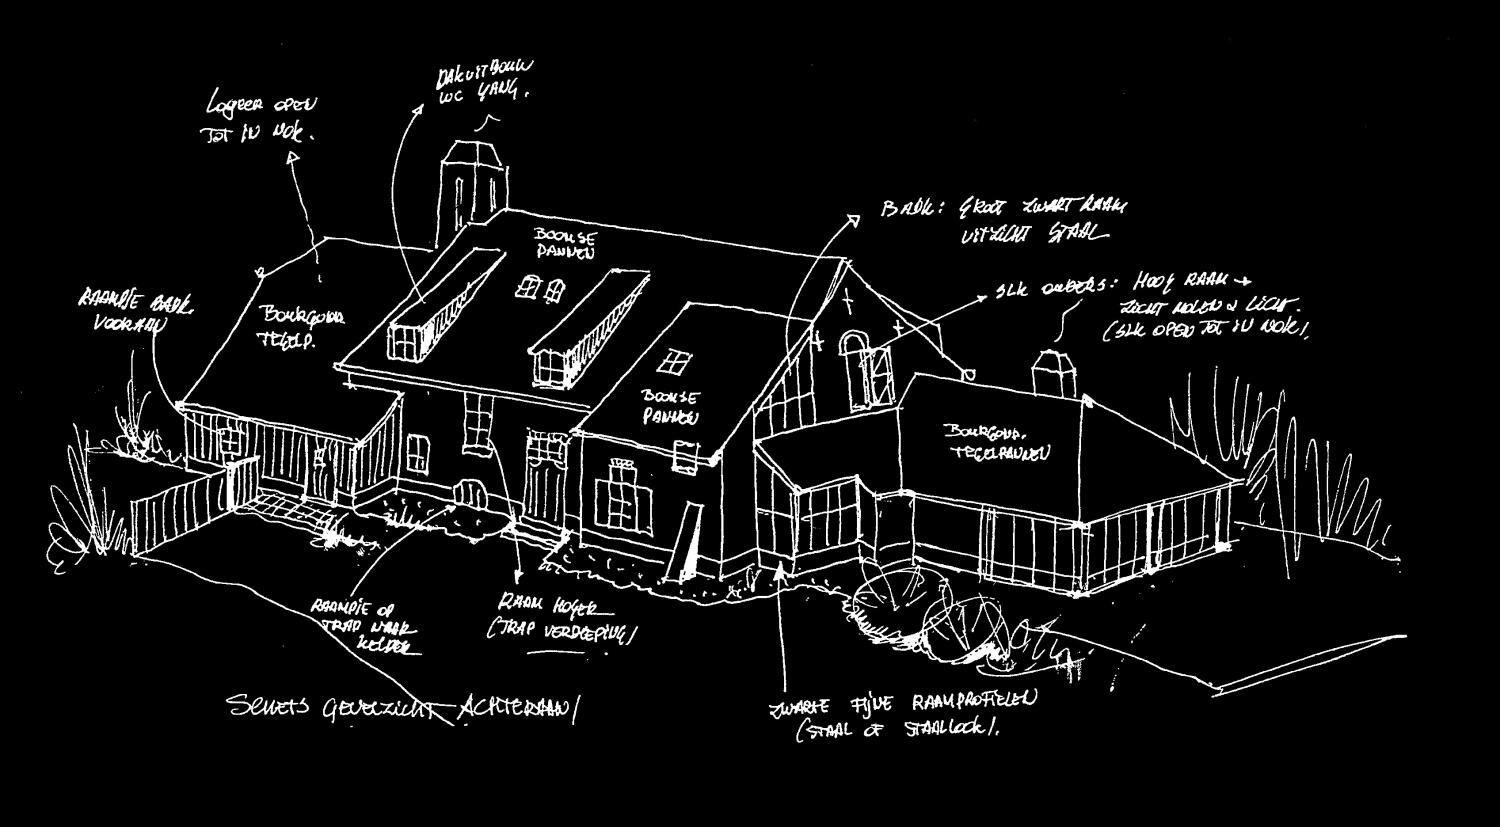 DAKUITBOUW
WC GANG.
LOGEER OPEN
TOT IN NOK.
BADK: GROOT ZWART RAAM
UITZICHT STAAL
BOOMSE
PANNEN
SLK OUDERS: HOOG RAAM →
ZICHT MOLEN & LICHT.
(SLK OPEN TOT IN NOK).
RAAMPJE BADK.
VOORAAN
BOURGOND.
TEGELP.
BOOMSE
PANNEN
BOURGOND.
TEGELPANNEN
RAAMPJE OP
TRAP NAAR
KELDER
RAAM HOGER
(TRAP VERDIEPING)
SCHETS GEVELZICHT ACHTERAAN/
ZWARTE FIJNE RAAMPROFIELEN
(STAAL OF STAALLOOK).